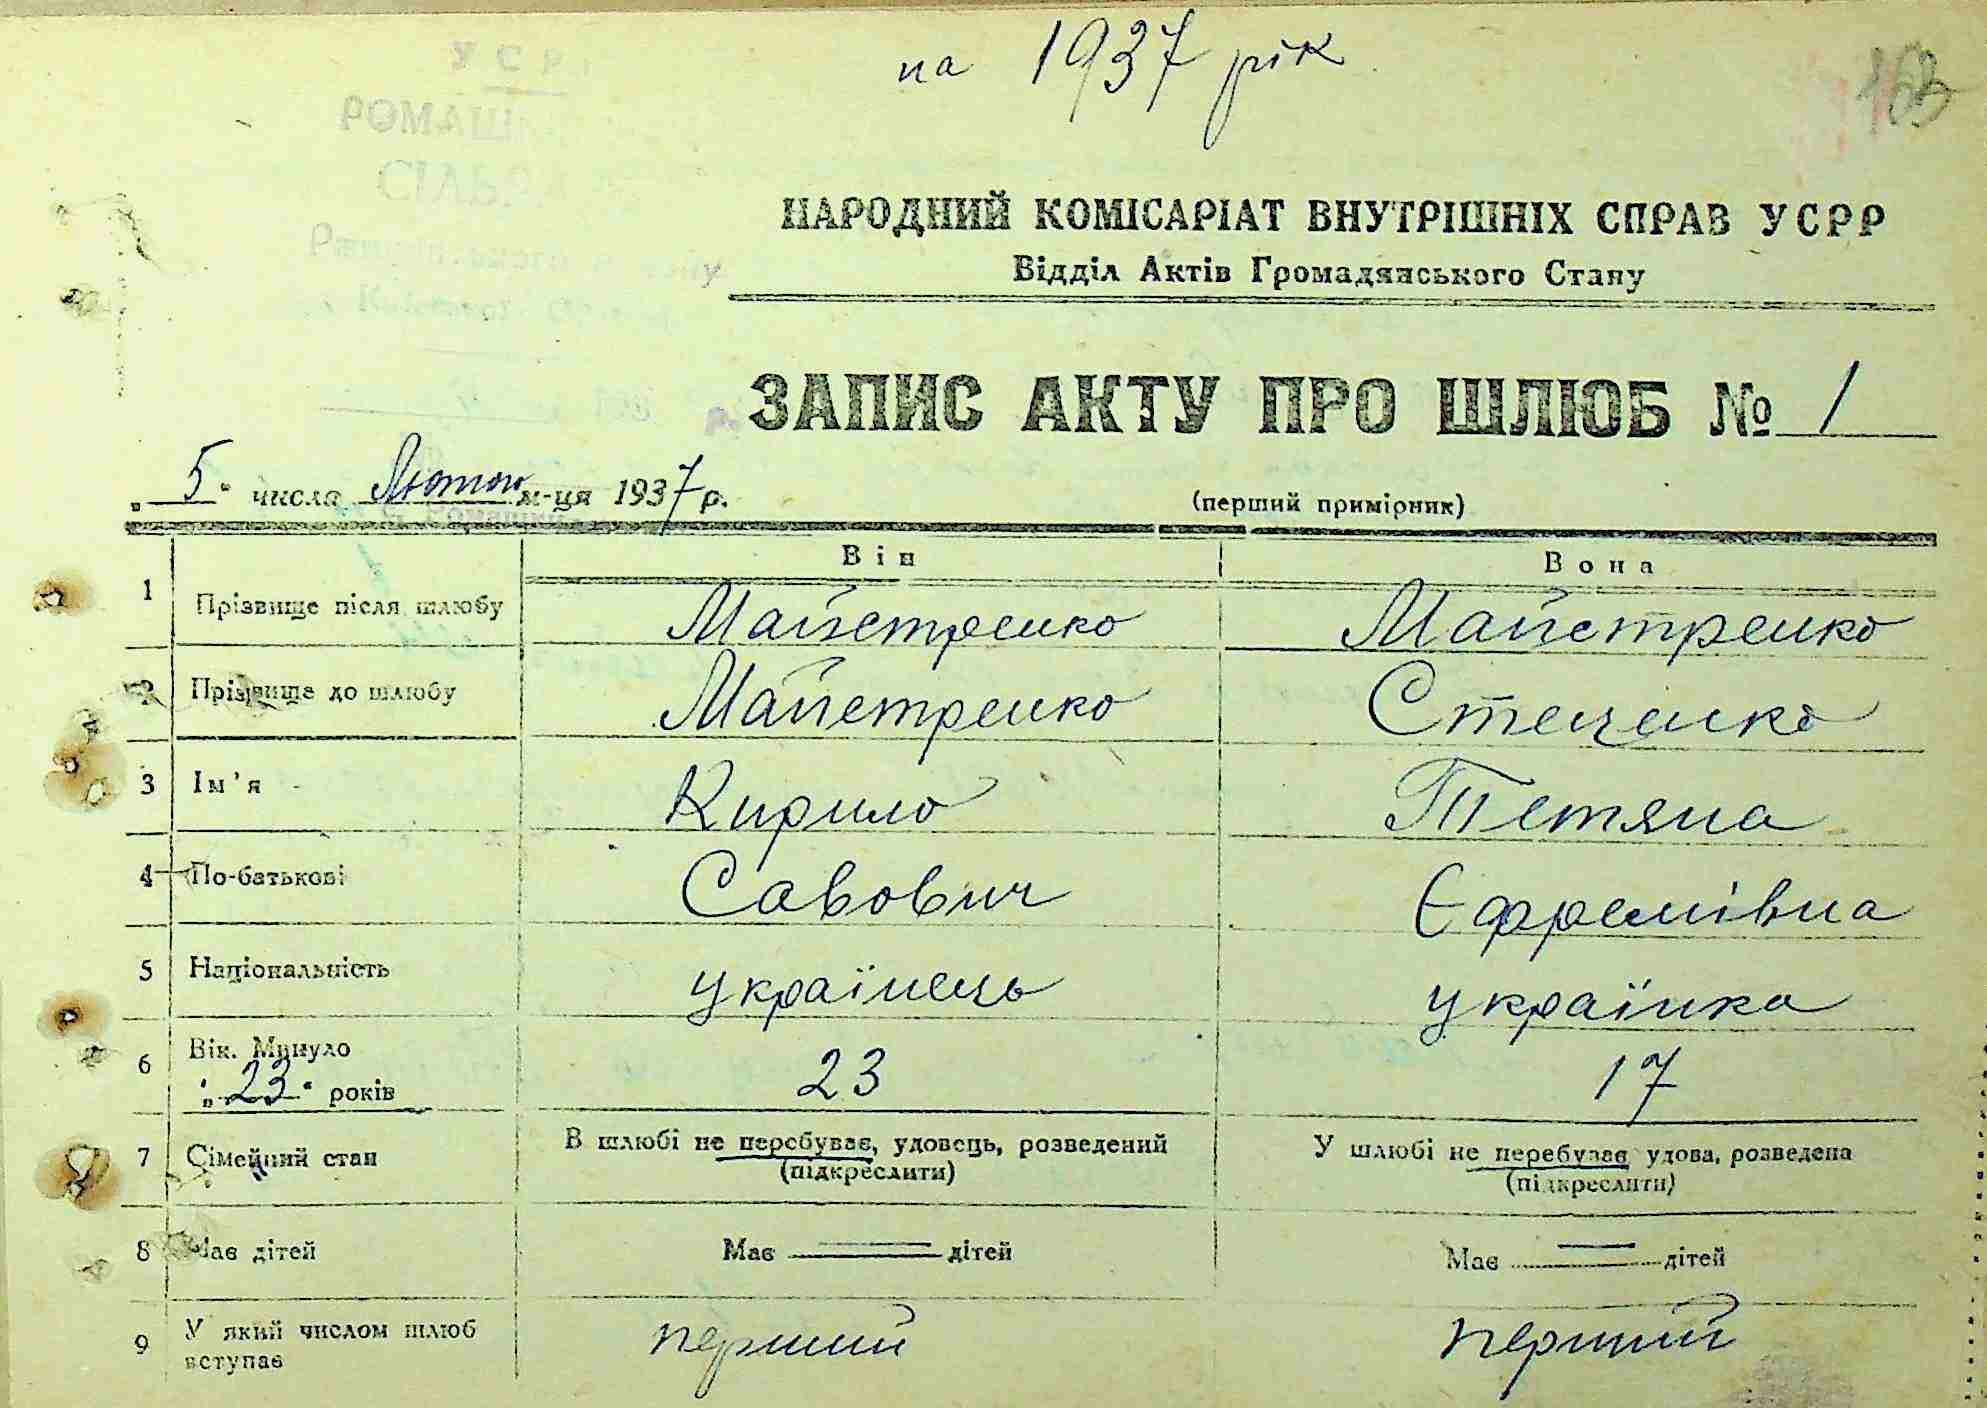 на 1937 рік
163
УСР
РОМАШ
СІЛЬ
НАРОДНИЙ КОМІСАРІАТ ВНУТРІШНІХ СПРАВ УСРР
Відділ Актів Громадянського Стану
ЗАПИС АКТУ ПРО ШЛЮБ № 1
„5“ числа Лютого м-ця 1937 р.
(перший примірник)
Він Вона
1 Прізвище після шлюбу Майстренко Майстренко
2 Прізвище до шлюбу Майстренко Стеценко
3 Ім'я Кирило Тетяна
4 По-батькові Савович Єфремівна
5 Національність українець українка
6 Вік. Минуло „23“ років 23 17
7 Сімейний стан В шлюбі не перебуває, удовець, розведений (підкреслити) У шлюбі не перебуває удова, розведена (підкреслити)
8 Має дітей Має дітей Має дітей
9 У який числом шлюб вступає перший перший